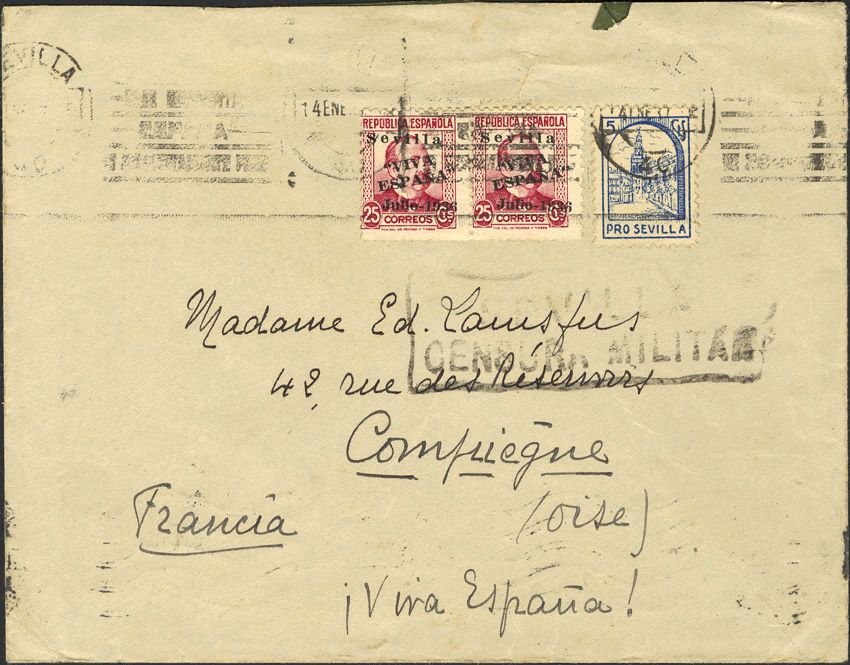 SEVILLA
14 ENE
REPÚBLICA ESPAÑOLA REPÚBLICA ESPAÑOLA
Sevilla Sevilla
¡VIVA ¡VIVA
ESPAÑA! ESPAÑA!
Julio-1936 Julio-1936
25 CORREOS Cts 25 CORREOS Cts
5 Cts
PRO SEVILLA
SEVILLA
CENSURA MILITAR
Madame Ed.
42, rue des Réservoirs
Compiègne
Francia (Oise)
¡Viva España!